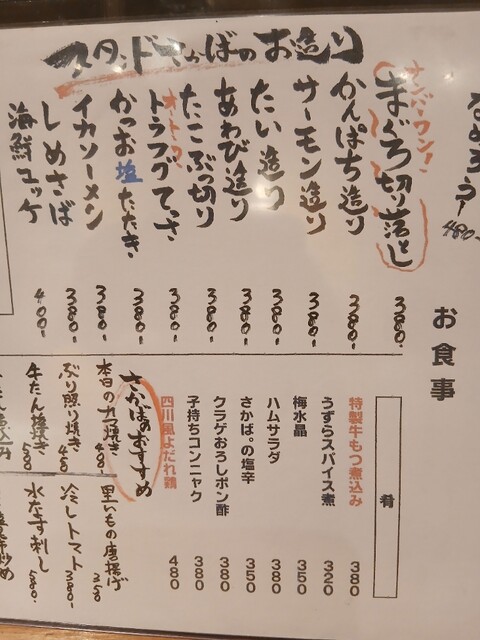 スタンドさかばのお造り
ナンバーワン!
まぐろ切り落とし 380-
かんぱち造り 380-
サーモン造り 380-
たい造り 380-
あわび造り 380-
たこぶつ切り 380-
トラフグてっさ 380-
かつお塩たたき 380-
イカソーメン 380-
しめさば 380-
海鮮ユッケ 400-
なめろう 480-
お食事
肴
特製牛もつ煮込み 380
うずらスパイス煮 320
梅水晶 350
ハムサラダ 380
さかば。の塩辛 350
クラゲおろしポン酢 380
子持ちコンニャク 380
四川風よだれ鶏 480
さかばのおすすめ
本日の
ぶり照り焼き 480-
牛たん
里いもの唐揚げ 350
冷しトマト 380-
水なす刺し 580-